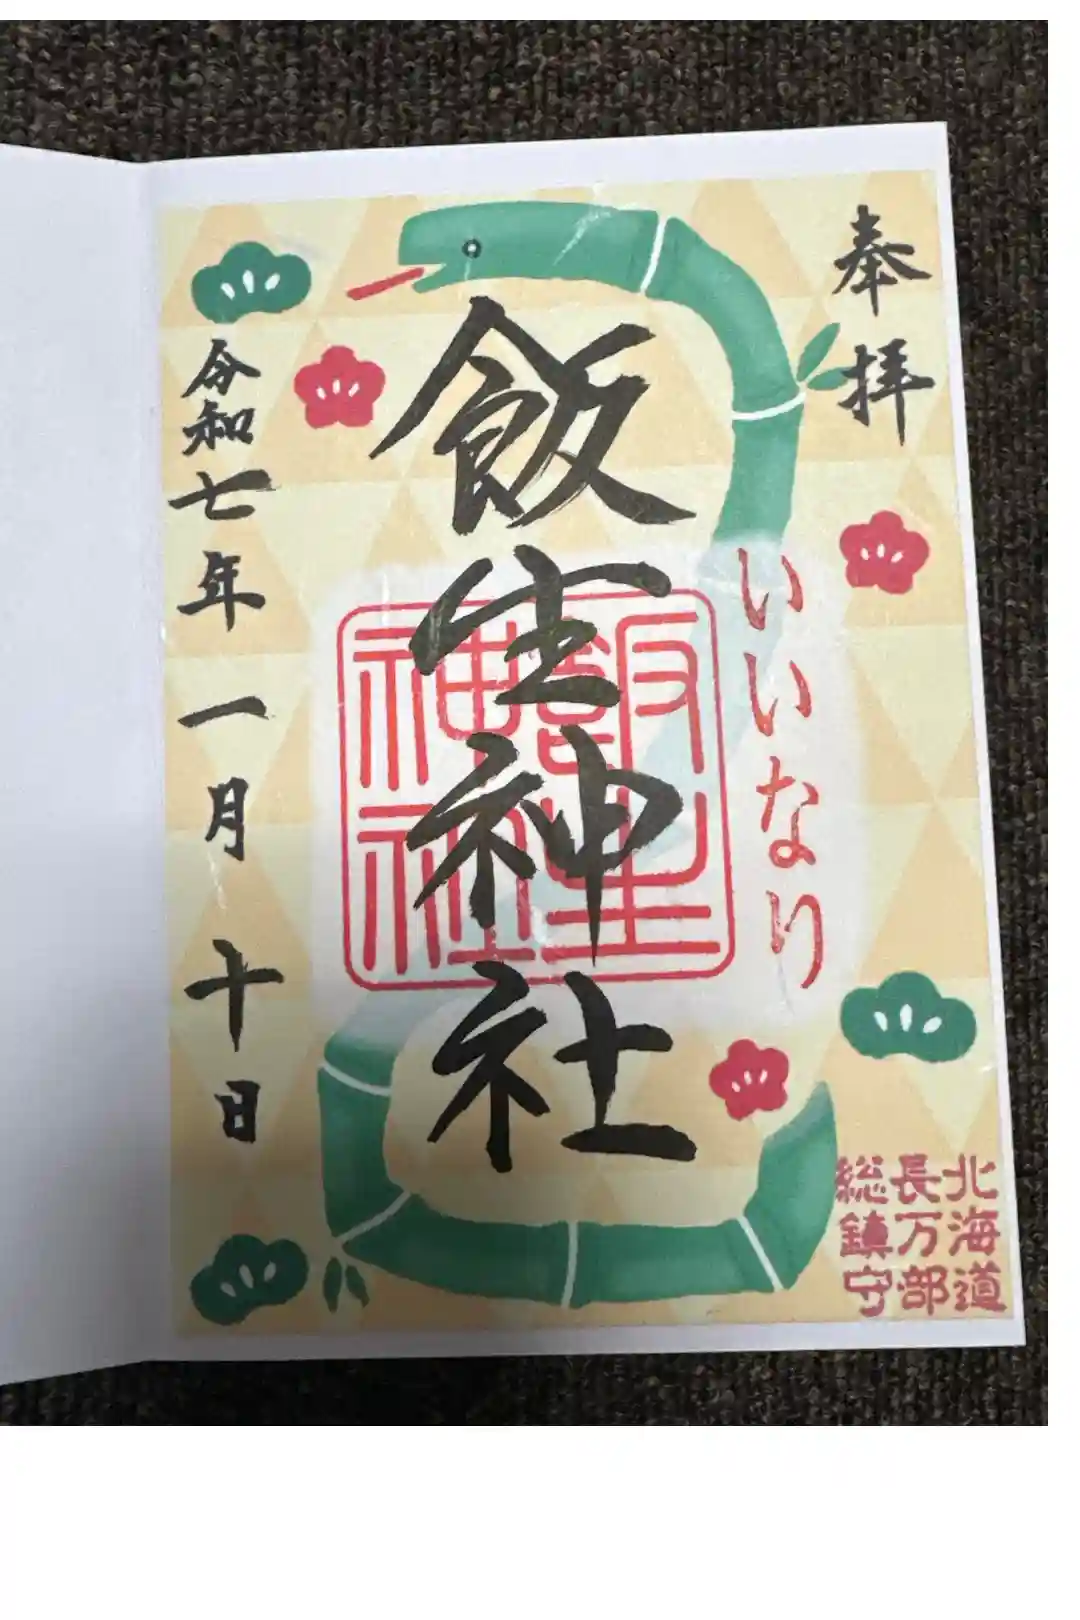 奉拝
いいなり
飯生神社
飯生
神社
令和七年一月十日
北海道
長万部
総鎮守